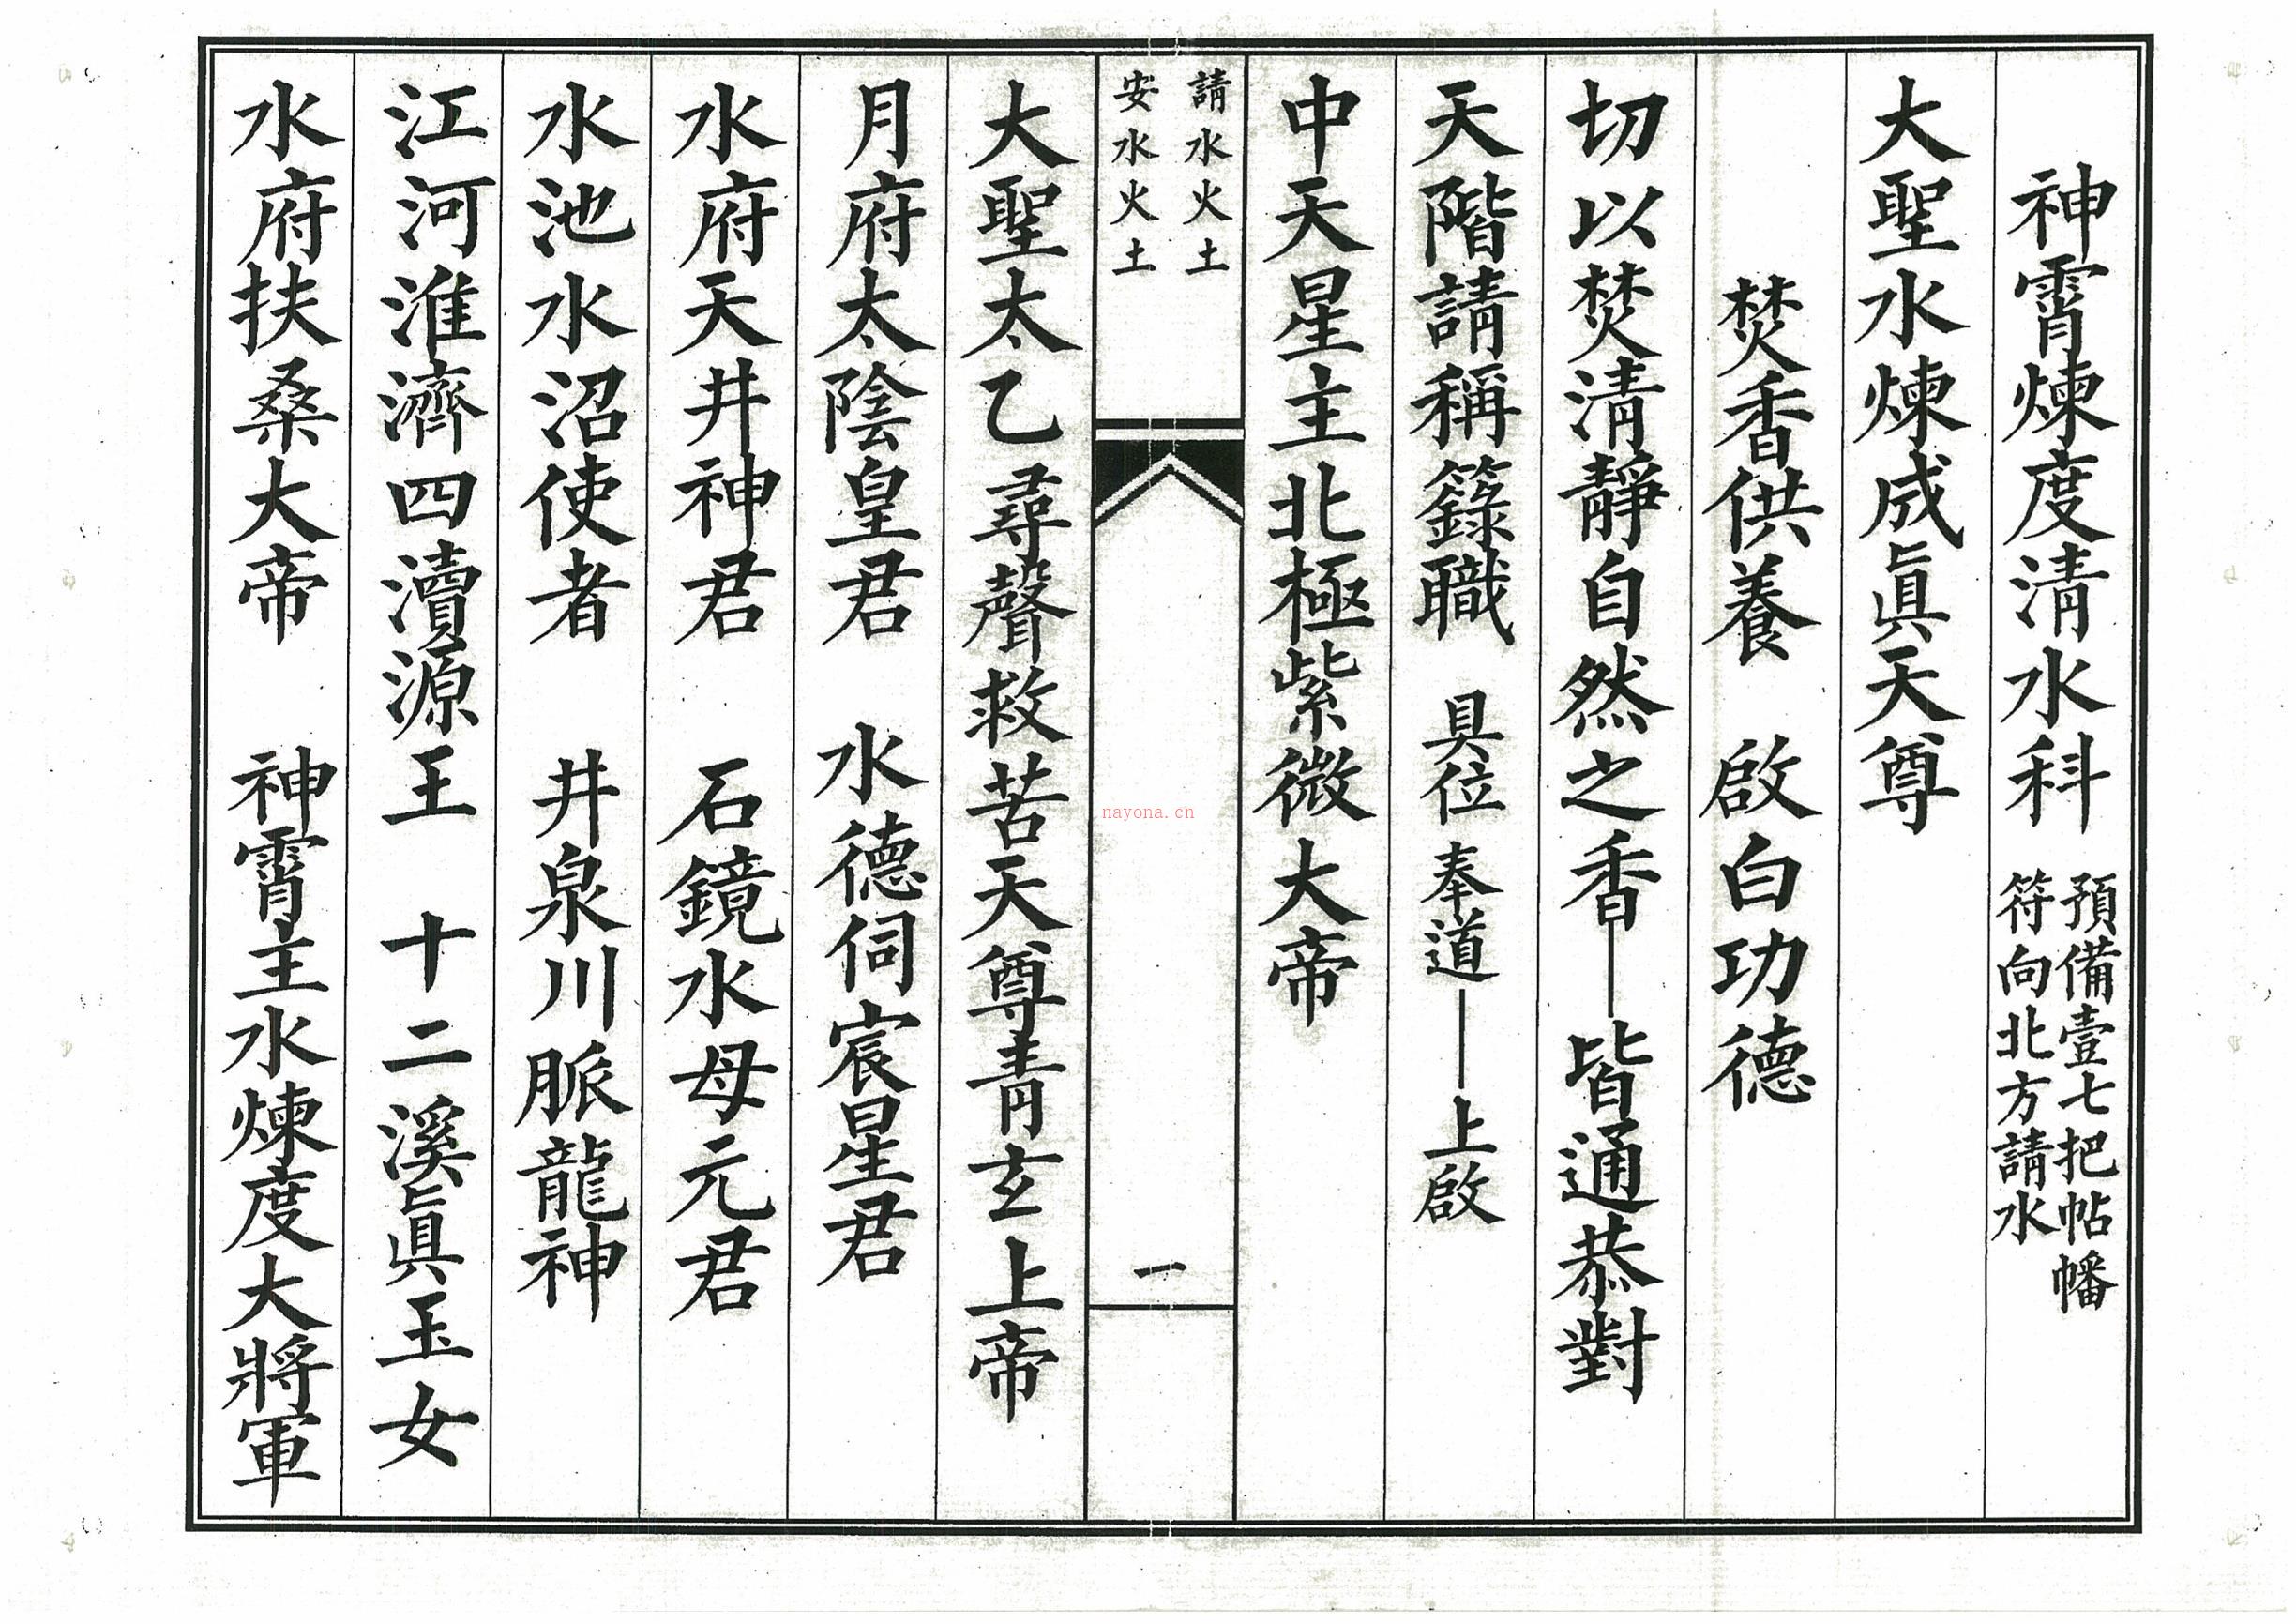 神霄煉度清水科
預備壹七把帖幡
符向北方請水
大聖水煉成眞天尊
焚香供養　啟白功德
切以焚清靜自然之香｜皆通恭對
天階請稱籙職　具位　奉道｜上啟
中天星主北極紫微大帝
請水火土
安水火土
一
nayona.cn
大聖太乙尋聲救苦天尊青玄上帝
月府太陰皇君　水德伺宸星君
水府天井神君　石鏡水母元君
水池水沼使者　井泉川脈龍神
江河淮濟四瀆源王　十二溪眞玉女
水府扶桑大帝　神霄主水煉度大將軍